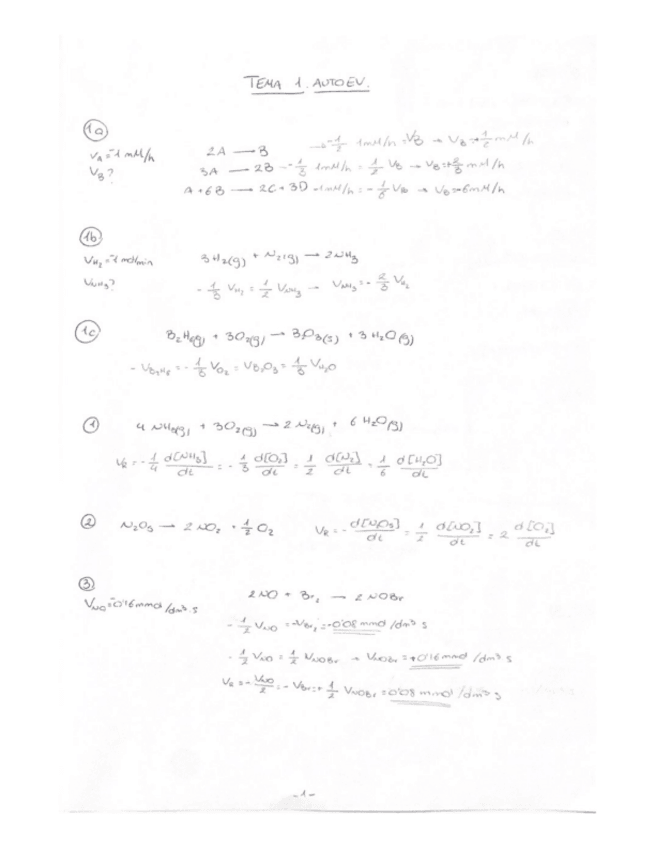 TEMA 1. AUTOEV.
1a
V_A = -1 mM/h
V_B?
2A → B → -1/2 1mM/h = V_B → V_B = +1/2 mM/h
3A → 2B -1/3 1mM/h = 1/2 V_B → V_B = +2/3 mM/h
A + 6B → 2C + 3D -1mM/h = -1/6 V_B → V_B = -6mM/h
1b
V_H2 = -1 mol/min
V_NH3?
3H2(g) + N2(g) → 2NH3
-1/3 V_H2 = 1/2 V_NH3 → V_NH3 = -2/3 V_H2
1c
B2H6(g) + 3O2(g) → B2O3(s) + 3H2O(g)
-V_B2H6 = -1/3 V_O2 = V_B2O3 = 1/3 V_H2O
1
4 NH3(g) + 3O2(g) → 2N2(g) + 6H2O(g)
V_R = -1/4 d[NH3]/dt = -1/3 d[O2]/dt = 1/2 d[N2]/dt = 1/6 d[H2O]/dt
2
N2O5 → 2NO2 + 1/2 O2 V_R = -d[N2O5]/dt = 1/2 d[NO2]/dt = 2 d[O2]/dt
3
V_NO = -0'16 mmol/dm³·s
2NO + Br2 → 2NOBr
-1/2 V_NO = -V_Br2 = -0'08 mmol/dm³ s
-1/2 V_NO = 1/2 V_NOBr → V_NOBr = +0'16 mmol/dm³ s
V_R = -V_NO/2 = -V_Br2 = +1/2 V_NOBr = 0'08 mmol/dm³ s
-1-